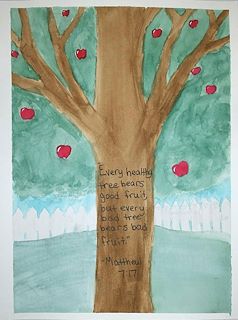 "Every healthy
tree bears
good fruit,
but every
bad tree
bears bad
fruit."
-Matthew
7:17